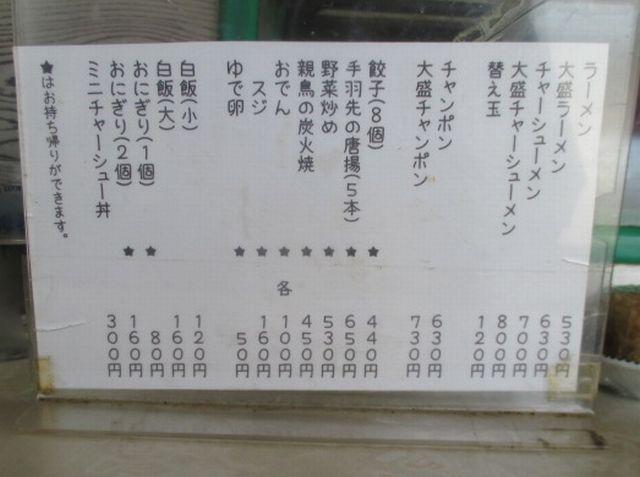 ラーメン 530円
大盛ラーメン 630円
チャーシューメン 700円
大盛チャーシューメン 800円
替え玉 120円
チャンポン 630円
大盛チャンポン 730円
餃子(8個) ★ 440円
手羽先の唐揚(5本) ★ 650円
野菜炒め ★ 530円
親鳥の炭火焼 ★ 450円
おでん ★ 各 100円
スジ ★ 160円
ゆで卵 ★ 50円
白飯(小) 120円
白飯(大) 160円
おにぎり(1個) ★ 80円
おにぎり(2個) ★ 160円
ミニチャーシュー丼 300円
★はお持ち帰りができます。